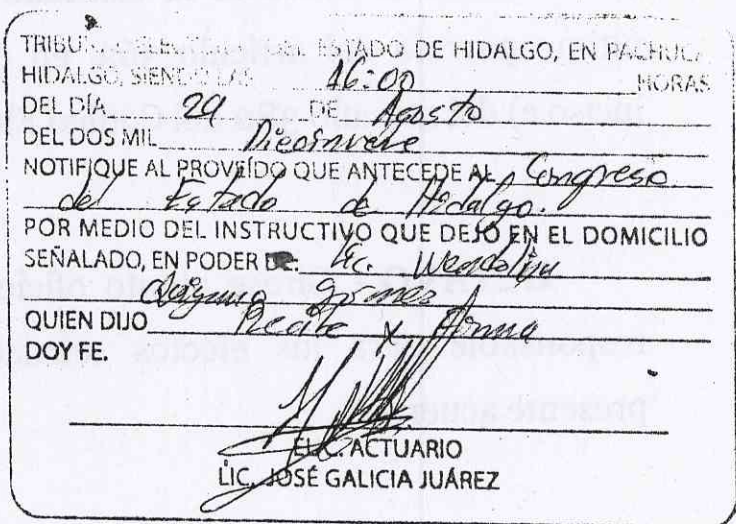 TRIBU ELECTORAL DEL ESTADO DE HIDALGO, EN PACHUCA
HIDALGO, SIENDO LAS 16:00 HORAS
DEL DÍA 29 DE Agosto
DEL DOS MIL Diecinueve
NOTIFIQUE AL PROVEÍDO QUE ANTECEDE AL Congreso
del Estado de Hidalgo.
POR MEDIO DEL INSTRUCTIVO QUE DEJÓ EN EL DOMICILIO
SEÑALADO, EN PODER DE: Lic. Wendolyn
QUIEN DIJO Recibe y firma
DOY FE.
ACTUARIO
LIC. JOSÉ GALICIA JUÁREZ